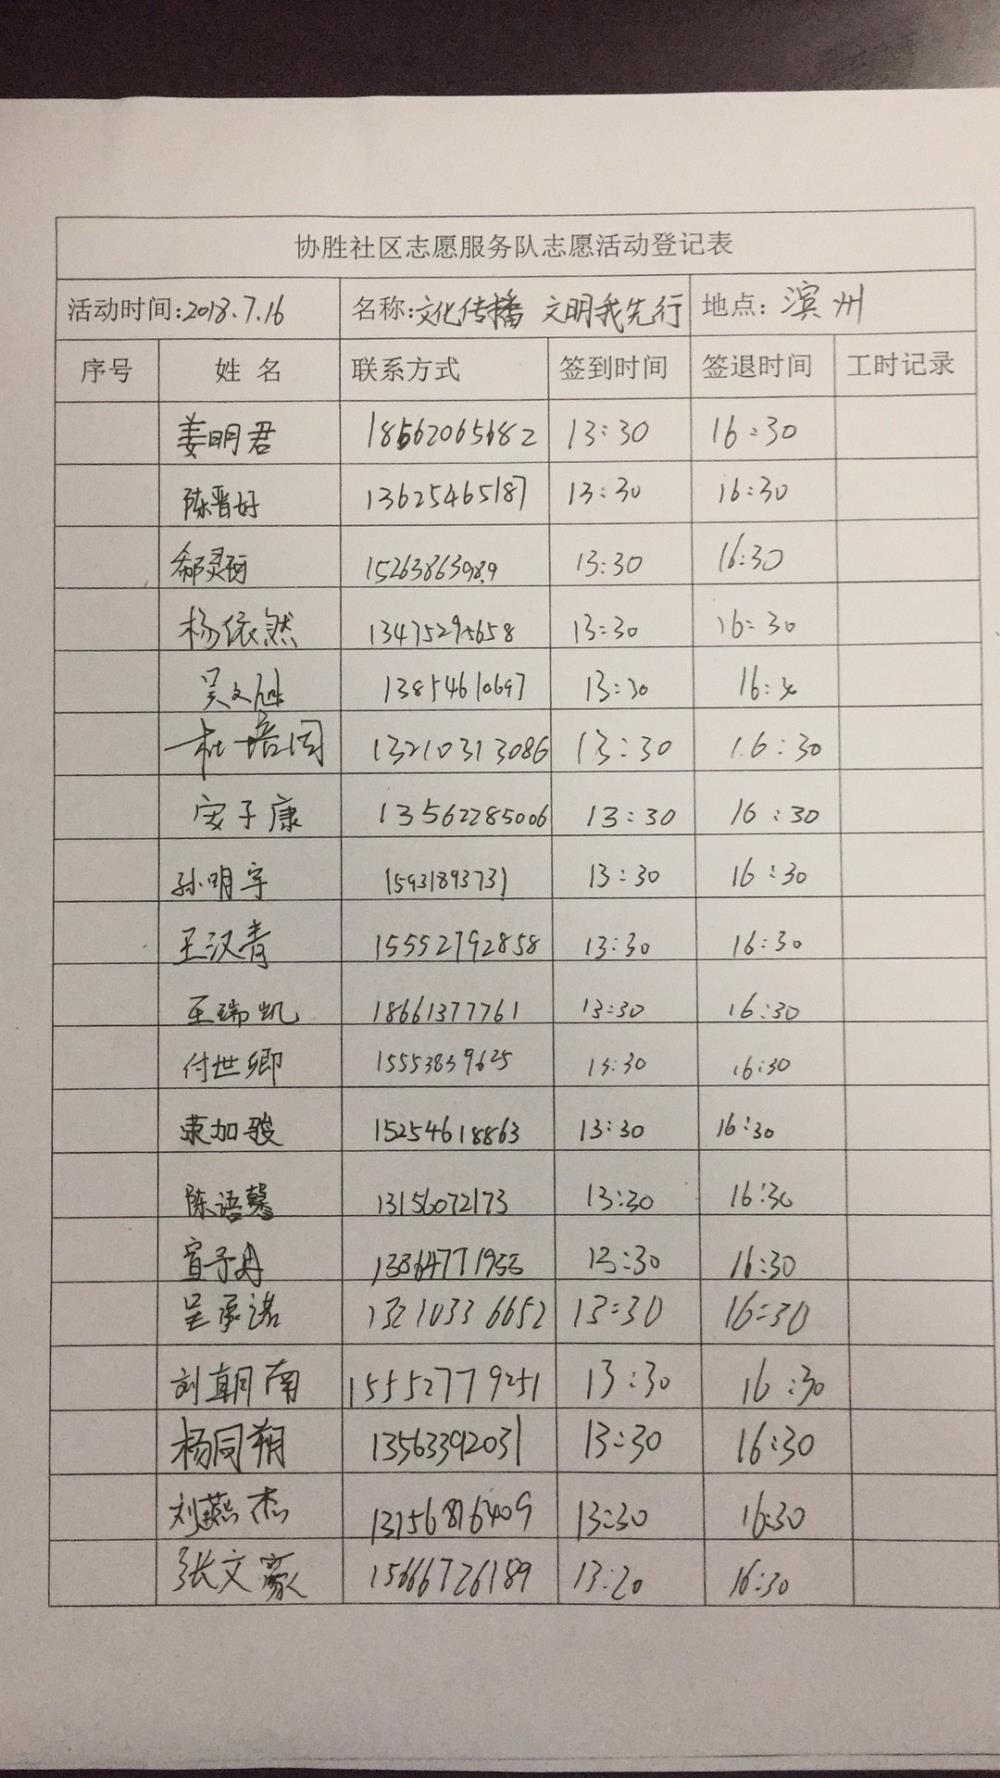 协胜社区志愿服务队志愿活动登记表
活动时间:2018.7.16 名称:文化传播 文明我先行 地点: 滨州
序号 姓 名 联系方式 签到时间 签退时间 工时记录
姜明君 18562065682 13:30 16:30
陈晋好 13625465187 13:30 16:30
13:30 16:30
杨依然 13475295658 13:30 16:30
13854610697 13:30 16:30
杜培同 13210313086 13:30 16:30
安子康 13562285006 13:30 16:30
孙明宇 15931893731 13:30 16:30
王汉青 15552792858 13:30 16:30
王瑞凯 18661377761 13:30 16:30
付世卿 15553859625 13:30 16:30
荣加骏 15254618863 13:30 16:30
陈语馨 13156072173 13:30 16:30
宣子丹 13:30 16:30
吴承诺 13210336652 13:30 16:30
刘朝南 15552779251 13:30 16:30
杨同朔 13563392031 13:30 16:30
刘燕杰 13:30 16:30
张文豪 15666726189 13:20 16:30